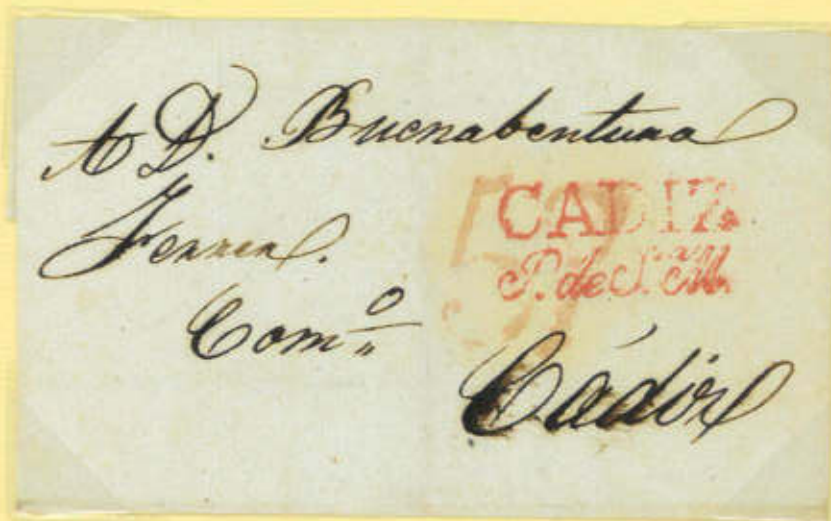 A D. Buenabentura
Ferrer.
CADIZ
P. de S. M.
Com.º
Cádiz